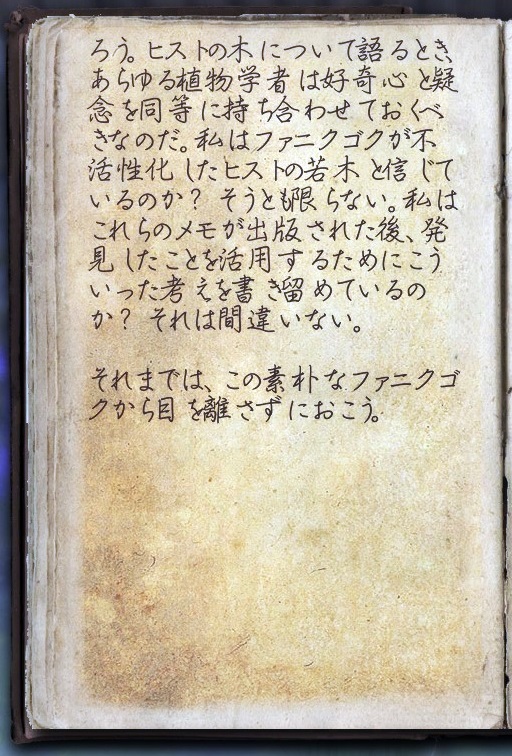 ろう。ヒストの木について語るとき、
あらゆる植物学者は好奇心と疑
念を同等に持ち合わせておくべ
きなのだ。私はファニクゴクが不
活性化したヒストの若木と信じて
いるのか？ そうとも限らない。私は
これらのメモが出版された後、発
見したことを活用するためにこう
いった考えを書き留めているの
か？ それは間違いない。

それまでは、この素朴なファニクゴ
クから目を離さずにおこう。